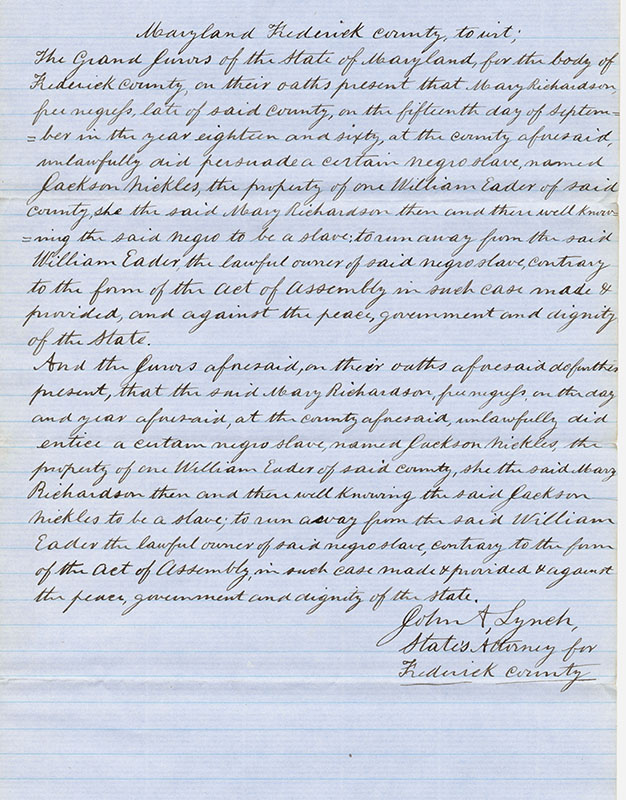 Maryland Frederick County, to wit;
The Grand Jurors of the State of Maryland, for the body of
Frederick County, on their oaths present that Mary Richardson,
free negress, late of said County, on the fifteenth day of Septem=
=ber in the year eighteen and sixty, at the county aforesaid,
unlawfully did persuade a certain negro slave, named
Jackson Nickles, the property of one William Eader of said
County, she the said Mary Richardson then and there well know=
=ing the said negro to be a slave; to run away from the said
William Eader, the lawful owner of said negro slave, contrary
to the form of the Act of Assembly in such case made &
provided, and against the peace, government and dignity
of the State.
And the Jurors aforesaid, on their oaths aforesaid do further
present, that the said Mary Richardson, free negress, on the day
and year aforesaid, at the county aforesaid, unlawfully did
entice a certain negro slave, named Jackson Nickles, the
property of one William Eader of said county, she the said Mary
Richardson then and there well knowing the said Jackson
Nickles to be a slave; to run away from the said William
Eader the lawful owner of said negro slave, contrary to the form
of the Act of Assembly, in such case made & provided & against
the peace, government and dignity of the state.
John A, Lynch,
State's Attorney for
Frederick County